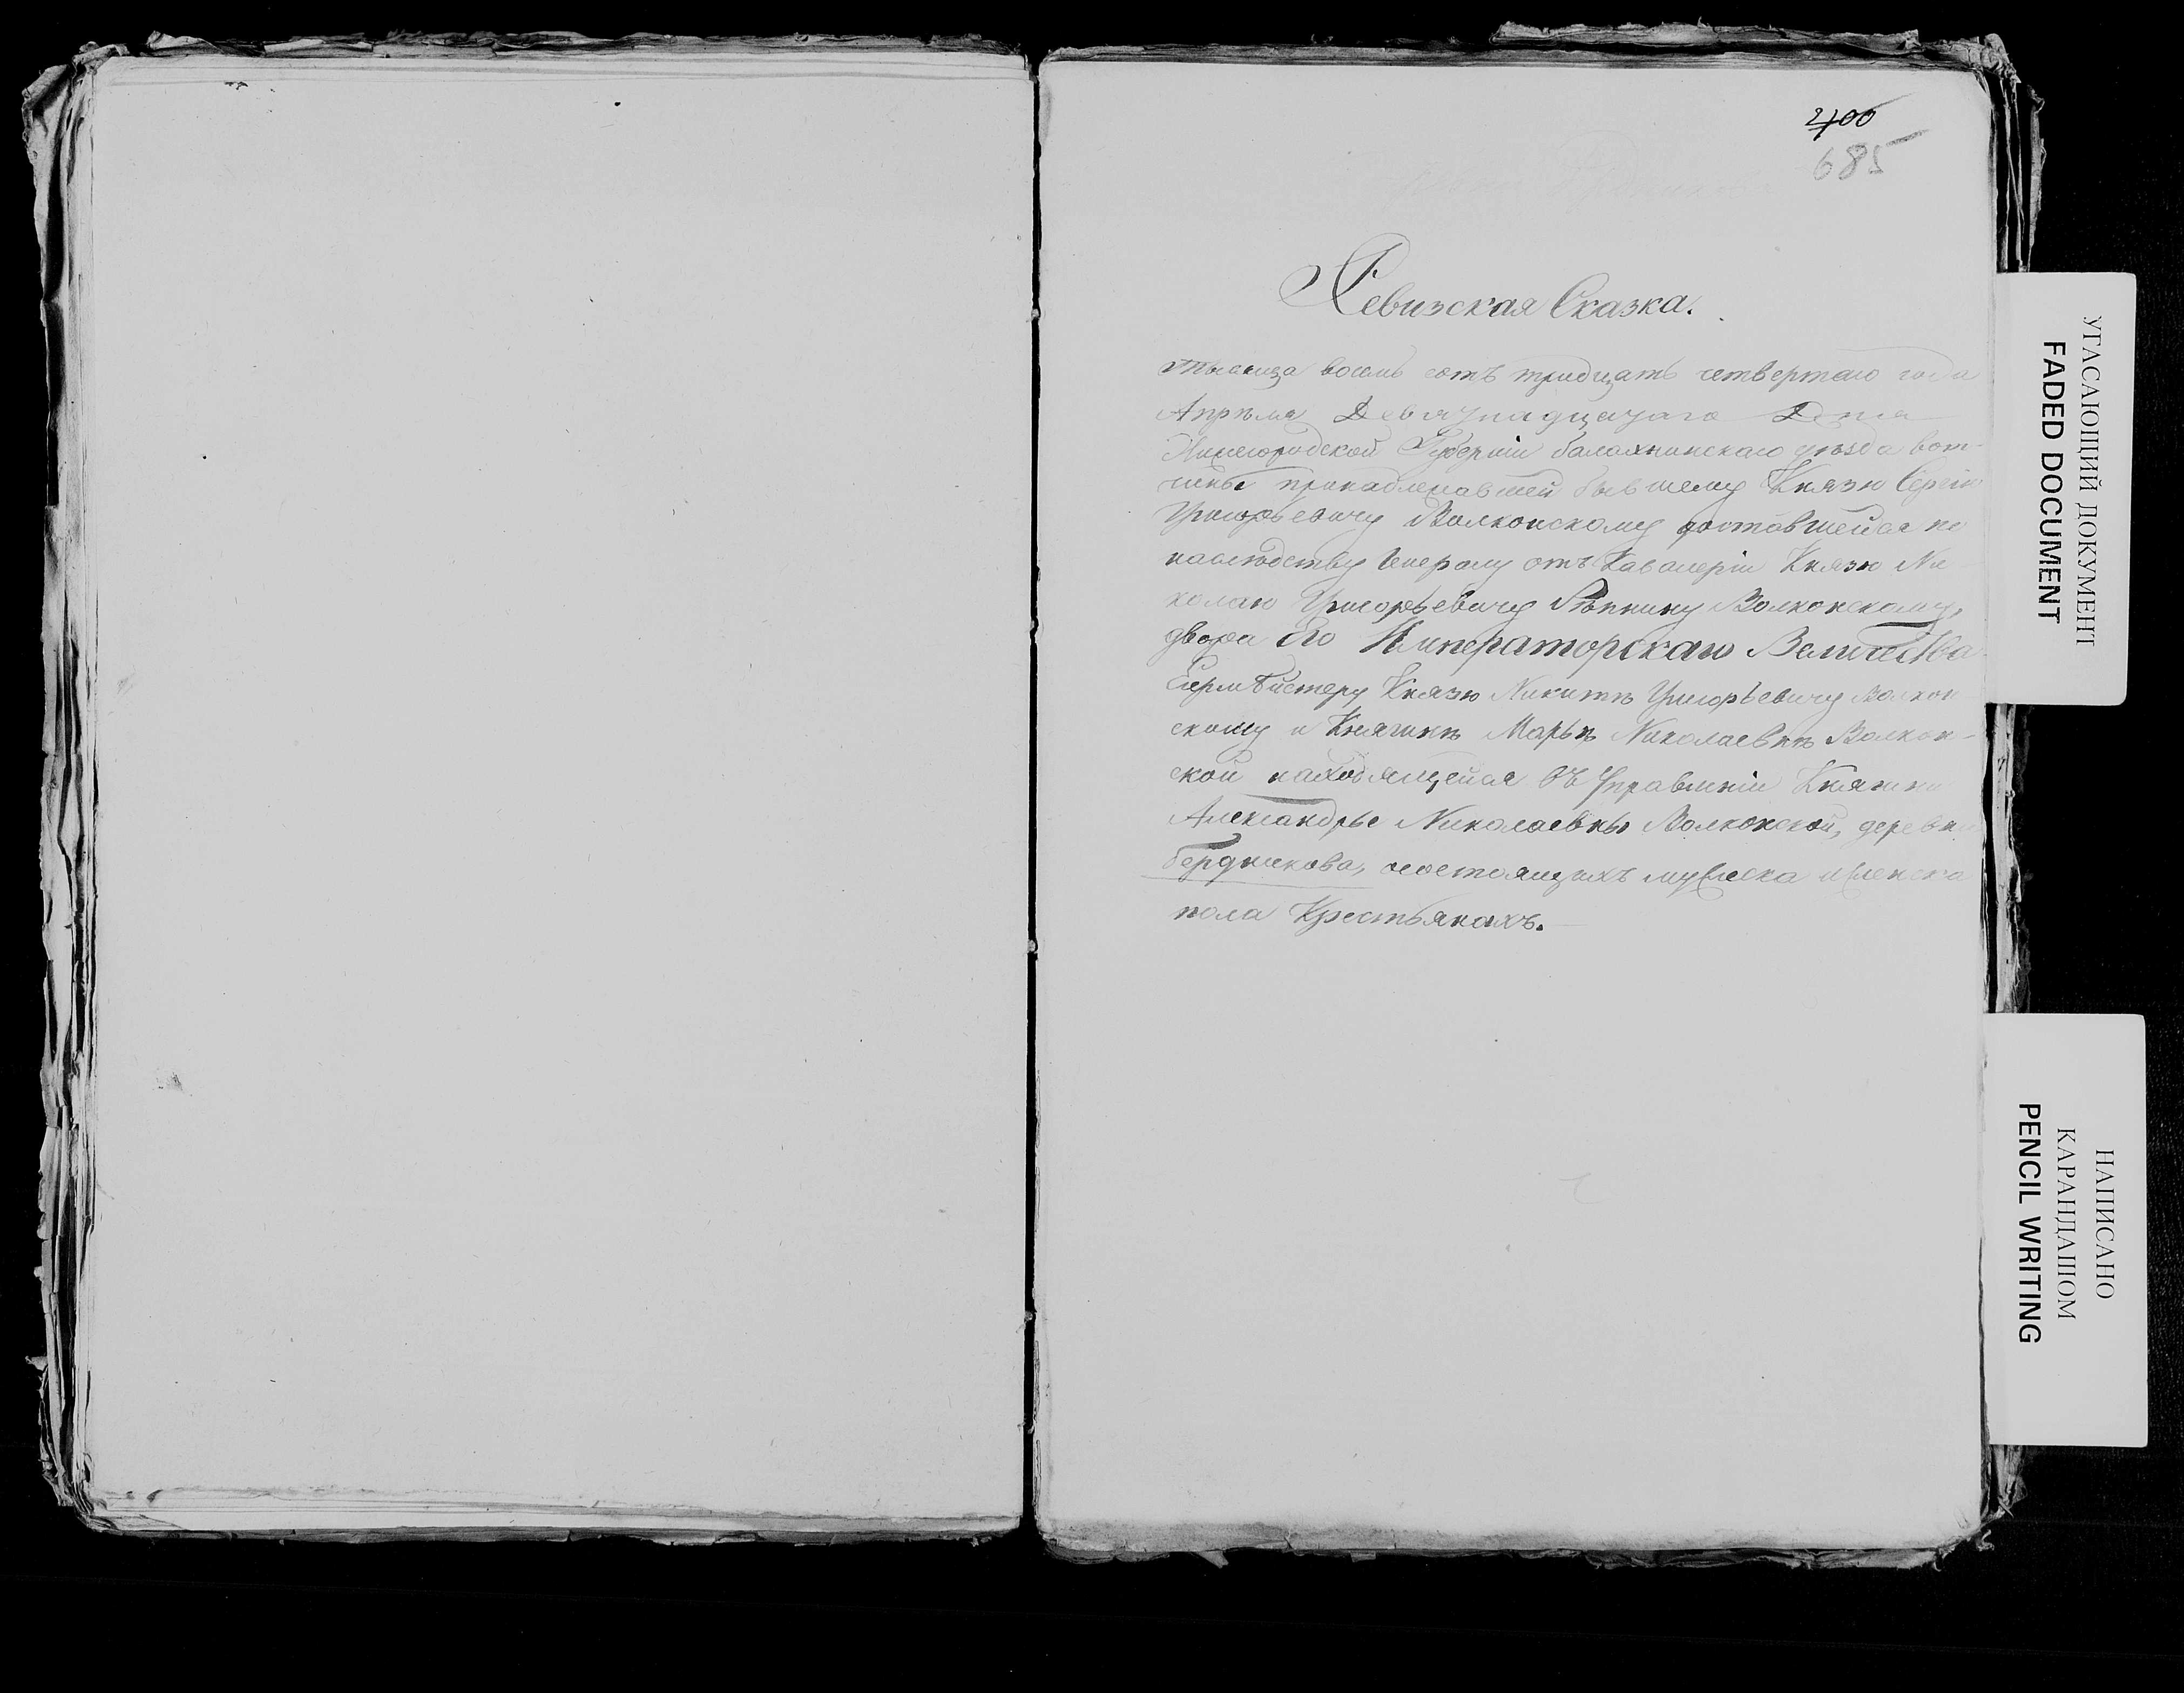 400
685
Ревизская Сказка.
тысяща восемь сотъ тридцать четвертаго года
Апрѣля Девятнадцатаго Дня
Нижегородской Губерніи балахнинскаго уѣзда вот-
чины принадлежавшей бывшему Князю Сергію
Григорьевичу Волконскому доставшейся по
наслѣдству Генералу отъ Кавалеріи Князю Ни
колаю Григорьевичу Рѣпнину Волконскому,
двора Его Императорскаго Величества
Егермейстеру Князю Никитѣ Григорьевичу Волкон
скому и Княгинѣ Марьѣ Николаевнѣ Волкон-
ской находящейся въ Управленіи Княгини
Александры Николаевны Волконской, деревни
бердникова, состоящихъ мужеска и женска
пола Крестьянахъ.
УГАСАЮЩИЙ ДОКУМЕНТ
FADED DOCUMENT
НАПИСАНО
КАРАНДАШОМ
PENCIL WRITING